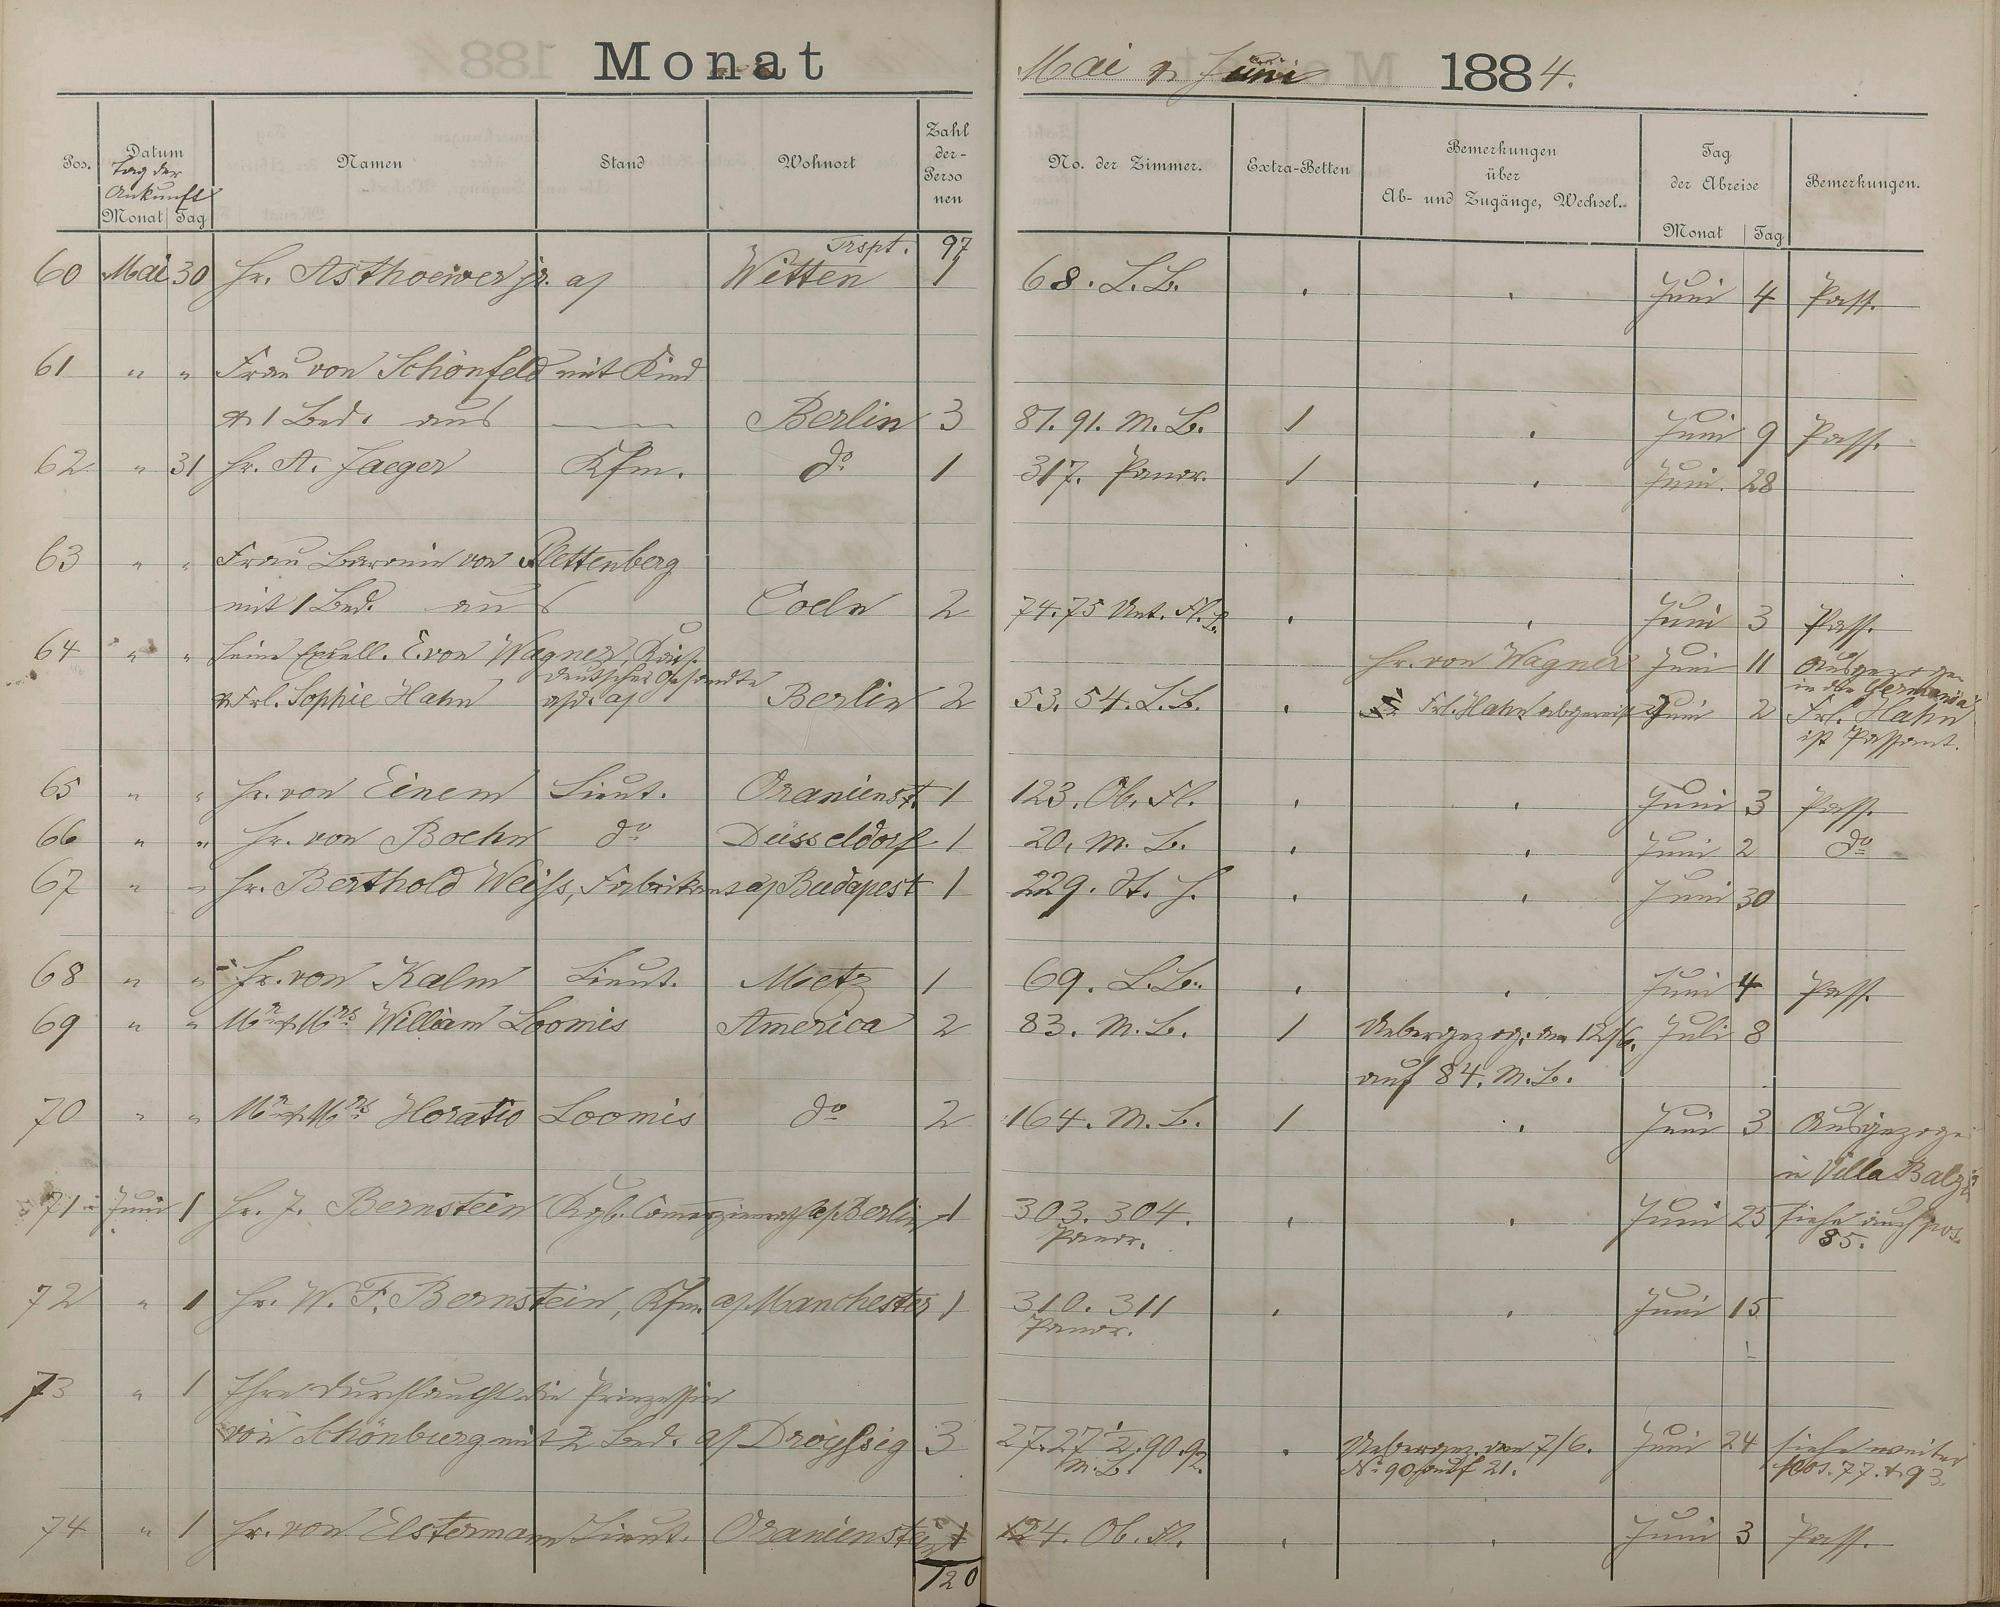 Monat
Mai & Juni 1884.
Pos.
Datum
Tag der
Ankunft
Monat Tag
Namen
Stand
Wohnort
Zahl
der-
Perso
nen
No. der Zimmer.
Extra-Betten
Bemerkungen
über
Ab- und Zugänge, Wechsel.
Tag
der Abreise
Monat Tag
Bemerkungen.
Trspt. 97
60 Mai 30 Hr. Asthoewer jr. a/ Witten 1 68. L.B. Juni 4 Pass.
61 " " Frau von Schönfeld mit Kind
& 1 Bed. aus — Berlin 3 87. 91. M. B. 1 Juni 9 Pass.
62 " 31 Hr. A. Jaeger Kfm. do 1 317. Panor. 1 Juni 28
63 " " Frau Baronin von Plettenberg
mit 1 Bed. aus Coeln 2 74.75 Unt. Fl. Juni 3 Pass.
64 " " Seine Excell. E. von Wagner, Kais. Hr. von Wagner Juni 11 Ausgezogen
deutscher Gesandte in die Germania
& Frl. Sophie Hahn a/ Berlin 2 53. 54. L.B. Frl. Hahn abgereist Juni 2 Frl. Hahn
ist Passant.
65 " " Hr. von Einem Lieut. Oranienst. 1 123. Ob. Fl. Juni 3 Pass.
66 " " Hr. von Boehn do Düsseldorf 1 20. M. B. Juni 2 do
67 " " Hr. Berthold Weiss, Fabrikant a/ Budapest 1 229. St. H. Juni 30
68 " " Hr. von Kalm Lieut. Metz 1 69. L.B. Juni 4 Pass.
69 " " Mr & Mrs William Loomis America 2 83. M. B. 1 Uebergezog. am 12/6. Juli 8
auf 84. M. B.
70 " " Mr & Mrs Horatio Loomis do 2 164. M. B. 1 Juni 3 Ausgezogen
in Villa Balzer
71 Juni 1 Hr. J. Bernstein Kgl. Comerzienrath a/ Berlin 1 303. 304. Juni 25 Siehe auch pos.
Panor. 85.
72 " 1 Hr. W. F. Bernstein, Kfm. a/ Manchester 1 310. 311 Juni 15
Panor.
73 " 1 Ihre Durchlaucht die Prinzessin
von Schönburg mit 2 Bed. a/ Droyssig 3 27. 27 1/2. 90. 92. Uebergez. von 7/6. Juni 24 Siehe weiter
M. B. No. 90 auf 21. pos. 77. & 93.
74 " 1 Hr. von Elstermann Lieut. Oranienstein 1 124. Ob. Fl. Juni 3 Pass.
120